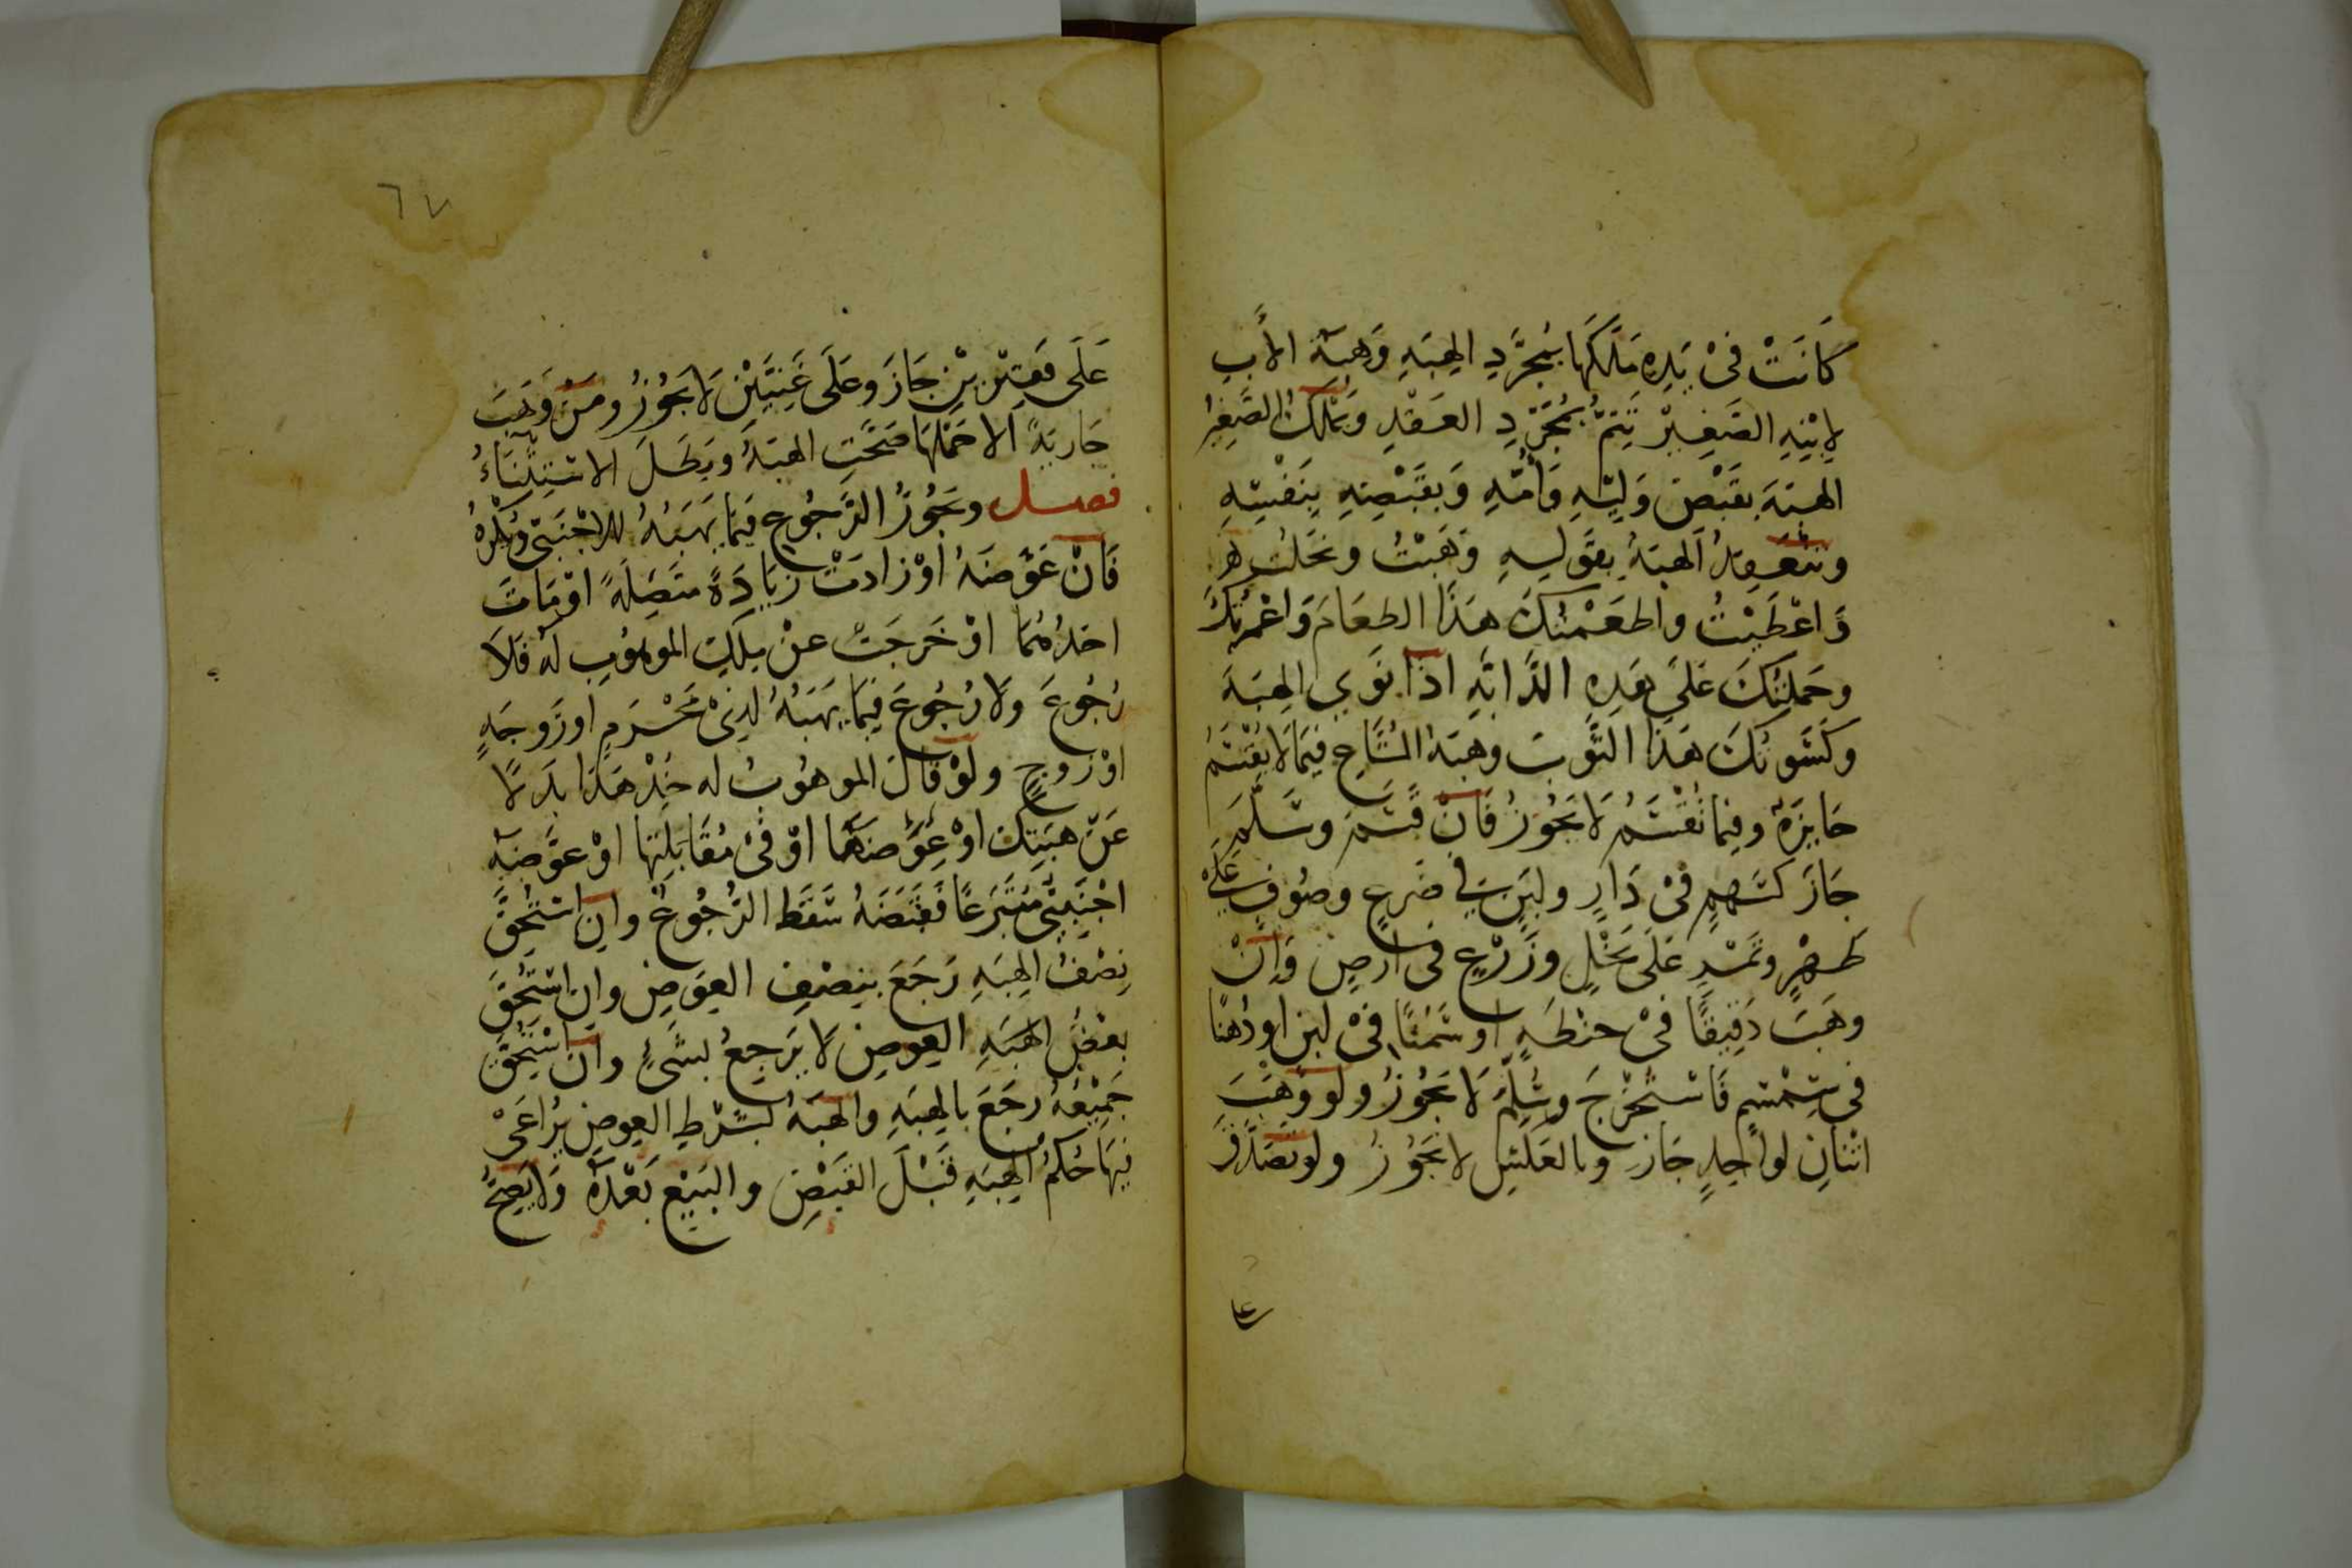 كَانَتْ فِىْ يَدِهِ مَلَكَهَا بِمُجَرَّدِ الهِبَةِ وَهِبَةُ الأَبِ
لِابْنِهِ الصَّغِيْرِ تَتِمُّ بِمُجَرَّدِ العَقْدِ وَيَمْلِكُ الصَّغِيْرُ
الهِبَةَ بِقَبْضِ وَلِيِّهِ وَأُمِّهِ وَبِقَبْضِهِ بِنَفْسِهِ
وتَنْعَقِدُ الهِبَةُ بِقَوْلِهِ وَهَبْتُ ونَحَلْتُ
وَاعْطَيْتُ واطْعَمْتُكَ هَذَا الطعَامَ وَاعْمَرْتُكَ
وحَمَلْتُكَ عَلَى هَذِهِ الدَّابَّةِ اذَا نَوَى الهِبَةَ
وكَسَوْتُكَ هَذَا الثَّوْبَ وهِبَةُ المُشَاعِ فِيْمَا لَا يُقْسَمُ
جَايِزَةٌ وفِيْمَا يُقْسَمُ لَا يَجُوْزُ فَانْ قَسَمَ وسَلَّمَ
جَازَ كَسَهْمٍ فِىْ دَارٍ ولَبَنٍ فِي ضَرعٍ وصُوْفٍ عَلَى
ظَهْرٍ وتَمْرٍ عَلَى نَخْلٍ وزَرْعٍ فى ارْضٍ وَانْ
وهَبَ دَقِيقًا فِىْ حنْطَةٍ اوسَمْنًا فِىْ لبن اودُهْنًا
فى سِمْسِمٍ فَاسْتَخْرَجَ وسَلَّمَ لَا يَجُوْزُ ولو وَهَبَ
اثْنَانِ لواحِدٍ جَازَ وبالعَكْسِ لا يَجُوْزُ ولو تَصَدَّقَ
٦٧
عَلَى فَقِيْرَيْنِ جَازَ وعَلَى غَنِيَّيْنِ لَا يَجُوْزُ ومَنْ وَهَبَ
جَارِيَةً الا حَمْلَهَا صَحَّتِ الهِبَةُ وبَطَلَ الاسْتِثْنَاءُ
فصل ويَجُوْزُ الرُّجُوعُ فِيْمَا يَهَبُهُ للاجْنَبِىّ ويُكْرَهُ
فَانْ عَوَّضَهُ اوْ زادَتْ زِيَادَةً متَّصِلَةً اوْ مَاتَ
احَدُهُمَا اوْ خَرَجَتْ عنْ مِلْكِ الموهُوْبِ لَهُ فَلَا
رُجُوعَ ولَا رُجُوعَ فِيْمَا يَهَبُهُ لِذِىْ مَحْرَمٍ اوزَوجَةٍ
اوْ زَوجٍ ولَوْ قَالَ الموهُوبُ له خُذْ هَذَا بَدَلًا
عَنْ هِبَتِكَ اوْ عِوَضهَا اوْ فِىْ مُقَابَلَتِهَا اوْ عوَّضَهُ
اجْنَبِىٌّ مُتَبَرِّعًا فَقَبَضَهُ سَقَطَ الرُّجُوعُ وان اسْتُحِقَّ
نِصْفُ الهِبَةِ رَجَعَ بِنِصْفِ العِوَضِ وان اسْتُحِقَّ
بعْضُ الهِبَةِ العِوضِ لَا يَرْجِعُ بشَىْءٍ وان اسْتُحِقَّ
جَمِيْعُهُ رجَعَ بالهِبَةِ والهِبَةُ بشَرْطِ العِوضِ يُرَاعَىْ
فيْهَا حُكمُ الهِبَةِ قَبْلَ القَبْضِ والبَيْعِ بَعْدَهُ ولَا يَصِحُّ